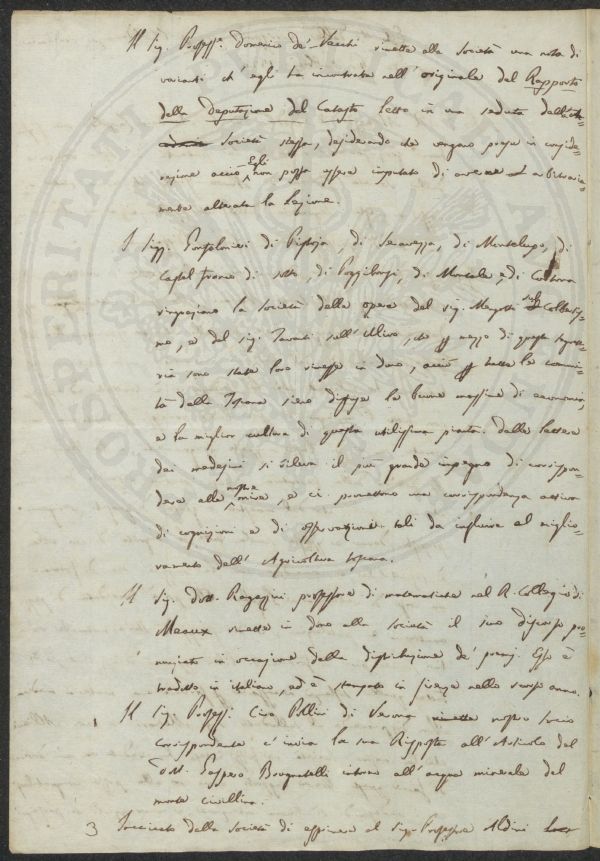 Il Sig. Profess.e Domenico de' Vecchi rimette alla Società una nota di
varianti ch' egli ha incontrate nell' originale del Rapporto
della Deputazione del Catasto letto in una seduta dell'
Società stessa, desiderando che vengano prese in conside-
razione acciò Egli non possa essere imputato di avere arbitraria-
mente alterata la lezione.
I Sigg. Gonfalonieri di Pistoja, di Seravezza, di Montelupo, di
Castel franco di sotto, di Poggibonsi, di Montale, e di Cortona
ringraziano la Società delle opere del sig. sul
mo, e del sig. Tavanti sull' Ulivo, che p mezzo di questa segrete-
ria sono state loro rimesse in dono, acciò p tutte le comuni-
tà della Toscana sieno diffuse le buone massime di economia,
e la miglior cultura di questa utilissima pianta. Dalle lettere
dei medesimi si rileva il più grande impegno di corrispon-
dere alle nostre mire, e ci promettono una corrispondenza attiva
di cognizioni e di osservazioni tali da influire al miglio-
ramento dell' Agricoltura toscana.
Il Sig. Dott. Ragazzini professore di matematiche nel R. Collegio di
Meaux rimette in dono alla Società il suo discorso pro-
nunziato in occasione della distribuzione de' premj. Esso è
tradotto in italiano, ed è stampato in firenze nello scorso anno.
Il Sig. Profess. Ciro Pollini di Verona rimette nostro socio
corrispondente c' invia la sua Risposta all' Articolo del
Dott. Gaspero Brugnatelli intorno all' acque minerale del
monte civillina.
3 Incaricato dalla Società di esprimere al Sig. Professore Aldini